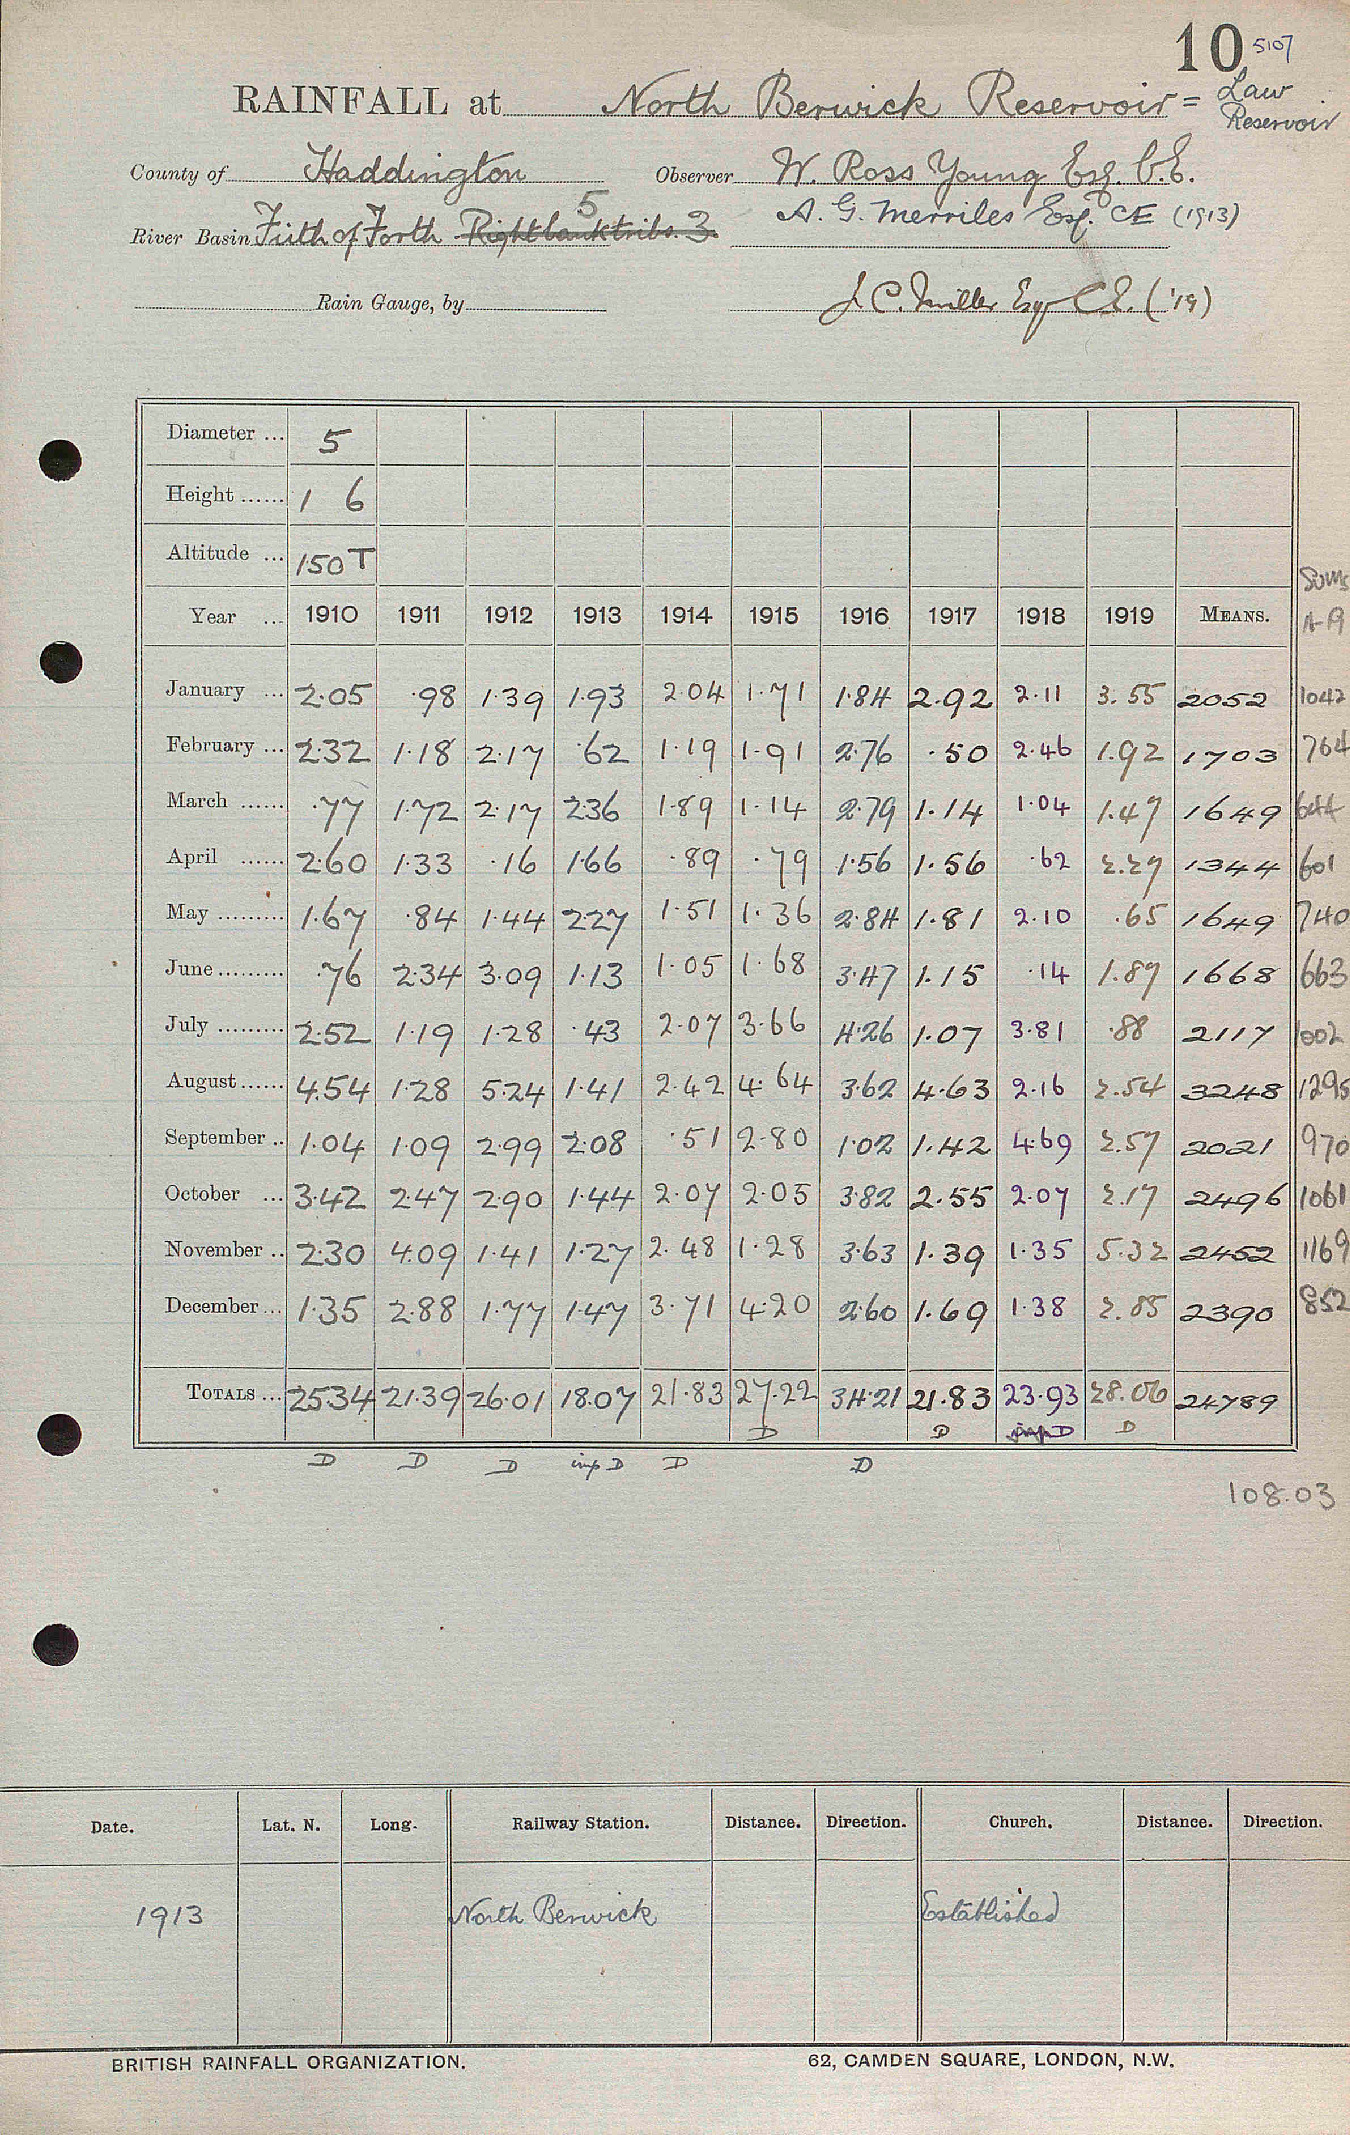 10 5107
RAINFALL at North Berwick Reservoir = Law Reservoir
County of Haddington Observer W. Ross Young Esq. C.E.
River Basin Firth of Forth Right bank tribs. 3 5 A. G. Merriles Esq. CE (1913)
Rain Gauge, by J. C. Miller Esq C.E. ('19)
Diameter ... 5
Height ...... 1 6
Altitude ... 150 T
Sums
Year ... 1910 1911 1912 1913 1914 1915 1916 1917 1918 1919 MEANS. 11-19
January ... 2.05 .98 1.39 1.93 2.04 1.71 1.84 2.92 2.11 3.55 2052 1042
February ... 2.32 1.18 2.17 .62 1.19 1.91 2.76 .50 2.46 1.92 1703 764
March ...... .77 1.72 2.17 2.36 1.89 1.14 2.79 1.14 1.04 1.47 1649 644
April ...... 2.60 1.33 .16 1.66 .89 .79 1.56 1.56 .62 2.27 1344 601
May ......... 1.67 .84 1.44 2.27 1.51 1.36 2.84 1.81 2.10 .65 1649 740
June ......... .76 2.34 3.09 1.13 1.05 1.68 3.47 1.15 .14 1.87 1668 663
July ......... 2.52 1.19 1.28 .43 2.07 3.66 4.26 1.07 3.81 .88 2117 1002
August ...... 4.54 1.28 5.24 1.41 2.42 4.64 3.62 4.63 2.16 2.54 3248 1295
September .. 1.04 1.09 2.99 2.08 .51 2.80 1.02 1.42 4.69 2.57 2021 970
October ... 3.42 2.47 2.90 1.44 2.07 2.05 3.82 2.55 2.07 2.17 2496 1061
November .. 2.30 4.09 1.41 1.27 2.48 1.28 3.63 1.39 1.35 5.32 2452 1169
December ... 1.35 2.88 1.77 1.47 3.71 4.20 2.60 1.69 1.38 2.85 2390 852
TOTALS ... 25.34 21.39 26.01 18.07 21.83 27.22 34.21 21.83 23.93 28.06 24789
D D imp D D
D D D imp D D D
108.03
Date. Lat. N. Long. Railway Station. Distance. Direction. Church. Distance. Direction.
1913 North Berwick Established
BRITISH RAINFALL ORGANIZATION. 62, CAMDEN SQUARE, LONDON, N.W.